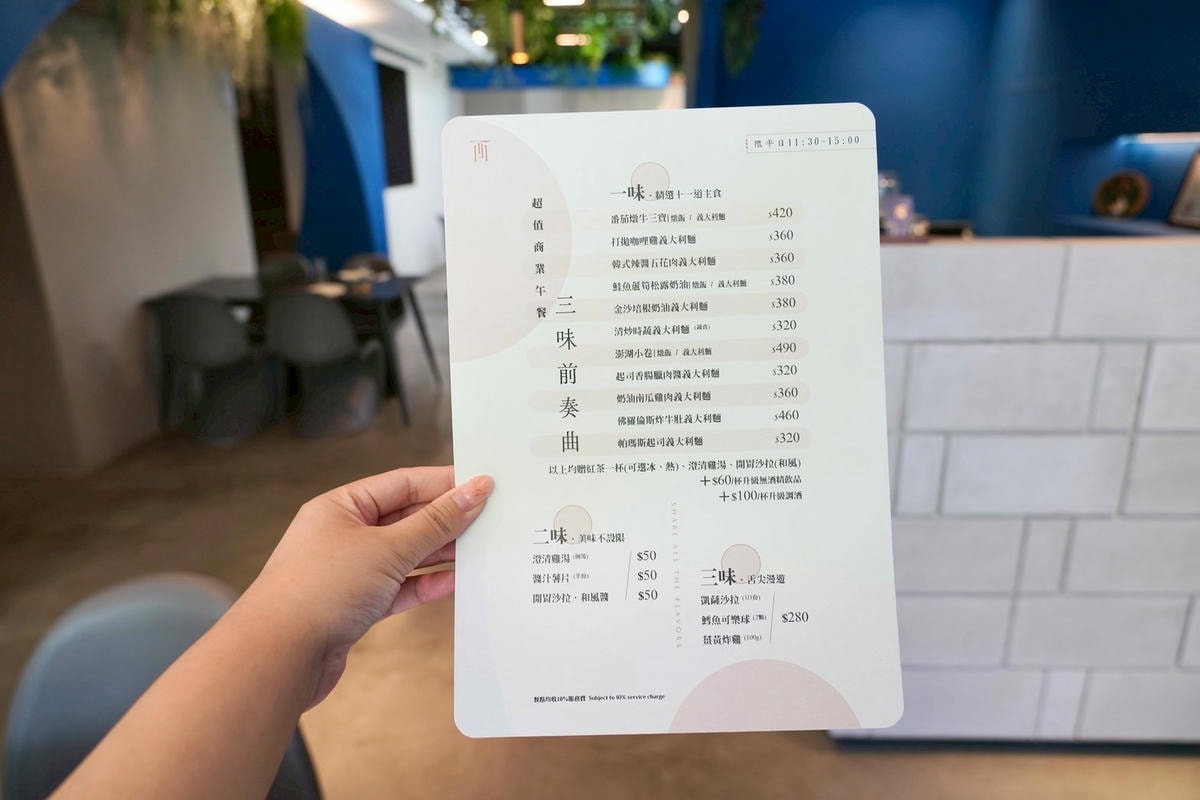 限平日11:30-15:00
超值商業午餐
三味前奏曲
一味·精選十一道主食
番茄燉牛三寶|燉飯 / 義大利麵 $420
打拋咖哩雞義大利麵 $360
韓式辣醬五花肉義大利麵 $360
鮭魚蘆筍松露奶油|燉飯 / 義大利麵 $380
金沙培根奶油義大利麵 $380
清炒時蔬義大利麵 (蔬食) $320
澎湖小卷|燉飯 / 義大利麵 $490
起司香腸臘肉醬義大利麵 $320
奶油南瓜雞肉義大利麵 $360
佛羅倫斯炸牛肚義大利麵 $460
帕瑪斯起司義大利麵 $320
以上均贈紅茶一杯(可選冰、熱)、澄清雞湯、開胃沙拉(和風)
+$60/杯升級無酒精飲品
+$100/杯升級調酒
二味·美味不設限
澄清雞湯 $50
醬汁薯片 (半份) $50
開胃沙拉·和風醬 $50
SHARE ALL THE FLAVORS
三味·舌尖漫遊
凱薩沙拉 (1/3份)
鱈魚可樂球 (2顆) $280
薑黃炸雞 (100g)
餐點均收10%服務費 Subject to 10% service charge